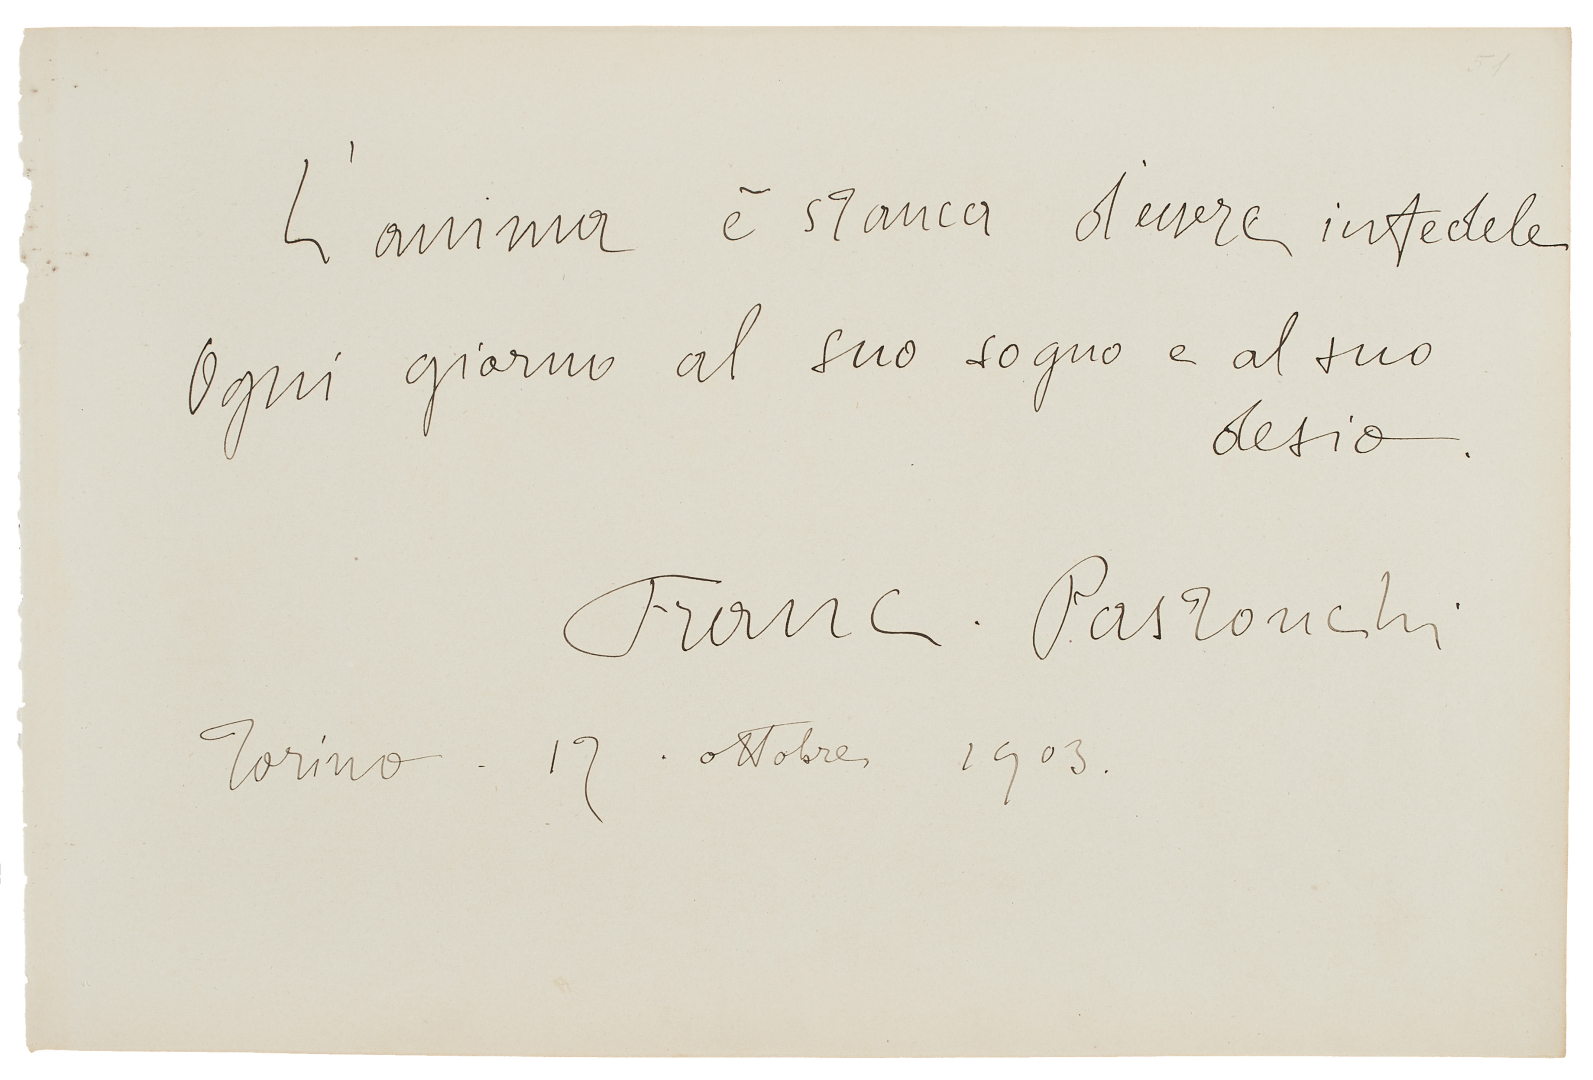 51
L'anima è stanca d'essere infedele
Ogni giorno al suo sogno e al suo
desio.
Franc. Pastonchi
Torino. 17. ottobre 1903.